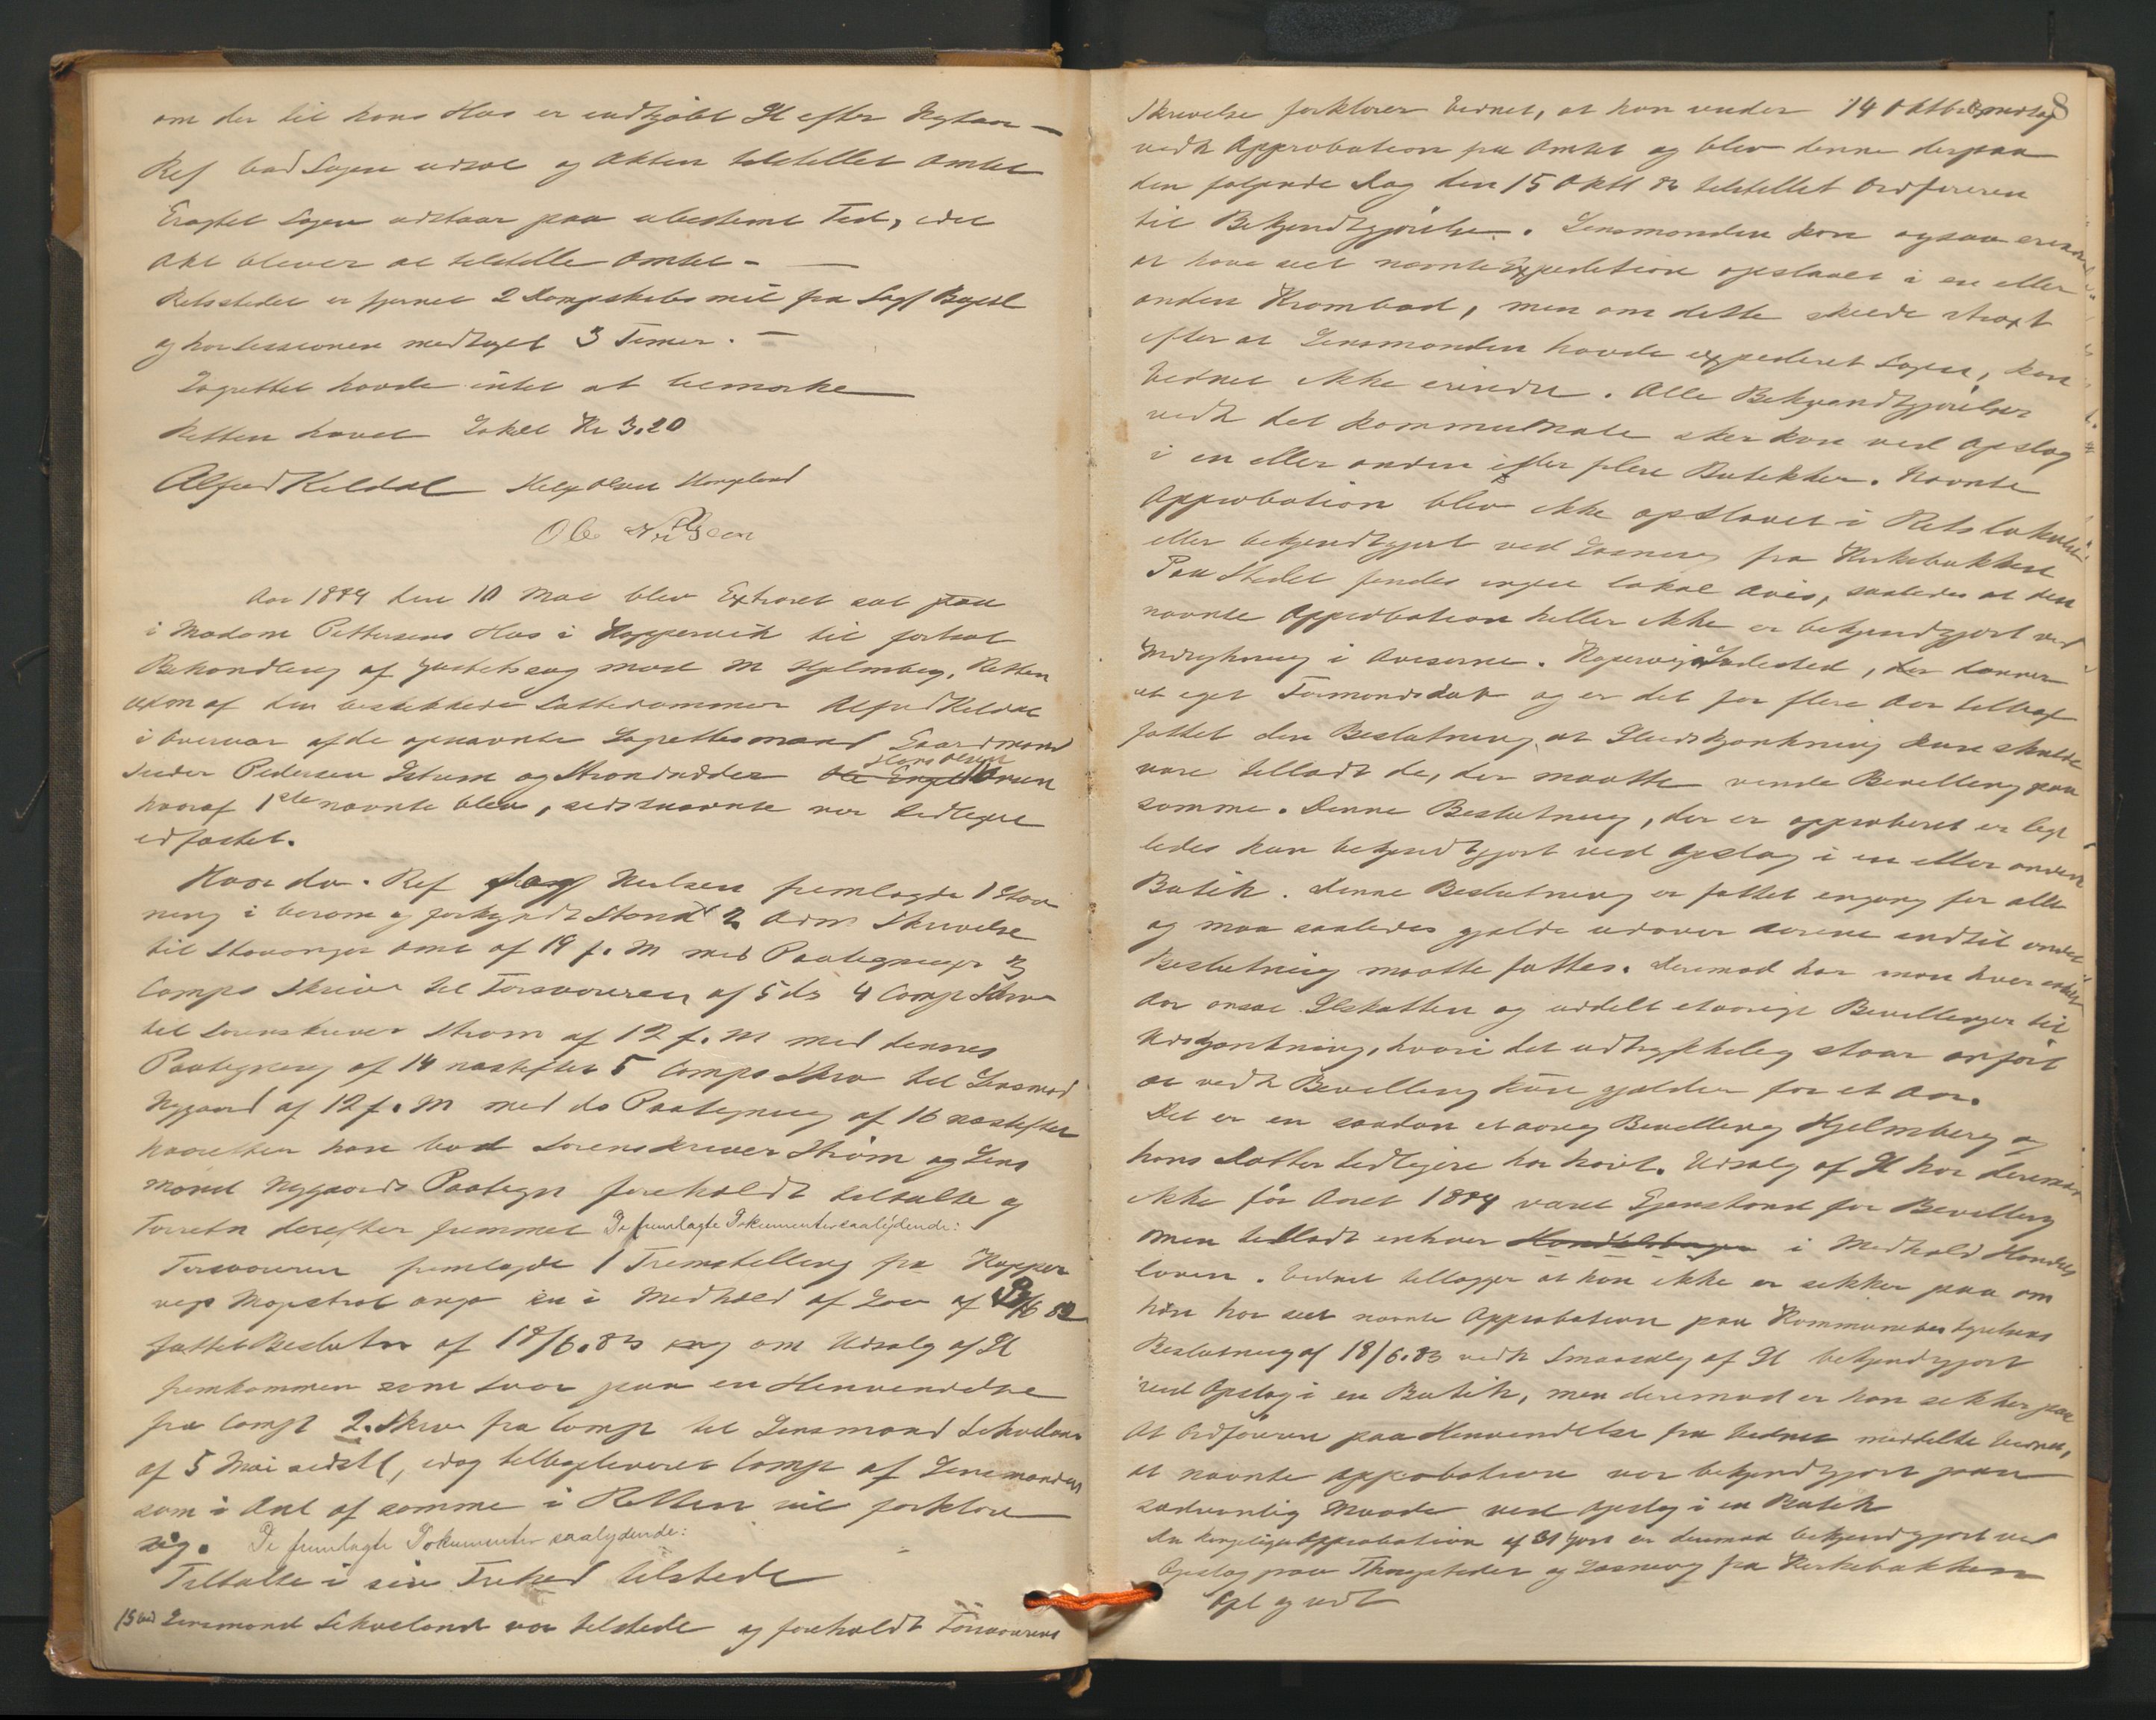 om der til hans Hus er indkjøbt Øl efter Nytaar —
Ref bad Sagen udsat og Akten tilstillet Amtet
Eragtet Sagen udstaar paa ubestemt Tid, idet
Akt bliver at tilstille Amtet —
Retsstedet er fjernet 2 Dampskibsmil fra Sagf Bopæl
og Kontinuationen medtaget 3 Timer. —
Lagrettet havde intet at bemærke
Retten hævet Lokal Kr 3.20
Alfred Keldal Helge Olsen
Ole Nilsen
Aar 1884 den 10 Mai blev Extraret sat paa
i Madam Pettersens Hus i Koppervik til fortsat
Behandling af Justitssag mod M Hjelmberg. Retten
adm af den beskikkede Sættedommer Alfred Keldal
i Overvær af de opnævnte Lagrettesmænd Gaardmand
Peder Pedersen og Strandsidder Ole Hans Olsen
hvoraf 1ste nævnte blev, sidstnævnte var tidligere
edfæstet.
Hvor da. Ref Sagf Nielsen fremlagde 1 Stæv
ning i berammet og forkyndt Stand 2 Adms Skrivelse
til Stavanger Amt af 19 f. M med Paategninger 3
Comps Skriv til Forsvareren af 5 ds 4 Comp Skriv
til Sorenskriver Strøm af 12 f. M med dennes
Paategning af 14 næstefter 5 Comps Skriv til Lensmand
Nygaard af 12 f. M med ds Paategning af 16 næstefter
hvorefter han bad Sorenskriver Strøm og Lens
mand Nygaards Paategn foreholdt tiltalte og
Forretn derefter fremmet De fremlagte Dokumenter saalydende:
Forsvareren fremlagde 1 Fremstilling fra Kopper
vigs Magistrat ang en i Medhold af Lov af /6 82
fattet Beslutn af 18/6.83 ang om Udsalg af Øl
fremkommen som Svar paa en Henvendelse
fra Comp 2. Skriv fra Comp til Lensmand Sekveland
af 5 Mai sidstl, idag tilbageleveret Comp af Lensmanden
som i Anl af samme i Retten vil forklare
sig. De fremlagte Dokumenter saalydende:
Tiltalte i sin Frihed tilstede
15 Vid Lensmand Sekveland var tilstede og foreholdt Forsvarerens
8
Skrivelse forklarer Vidnet, at han under 14 Oktbr modtog
vedk Approbation fra Amtet og blev denne derpaa
den følgende Dag den 15 Oktb 83 tilstillet Ordføreren
til Bekjendtgjørelse. Lensmanden kan ogsaa erindre
at have seet nævnte Expedition opslaaet i en eller
anden Krambod, men om dette skede straxt
efter at Lensmanden havde expederet Sagen, kan
Vidnet ikke erindre. Alle Bekjendtgjørelser
vedk det kommunale sker kun ved Opslag
i en eller anden eller flere Butikker. Nævnte
Approbation blev ikke opslaaet i Retslokalet
eller bekjendtgjort ved Læsning fra Kirkebakken
Paa Stedet findes ingen lokal Avis, saaledes at den
nævnte Approbation heller ikke er bekjendtgjort ved
Indrykning i Aviserne. Kopervig Ladested, der danner
et eget Formandsdist og er det for flere Aar tilbage
fattet den Beslutning, at Øludskjænkning kun skulde
være tilladt de, der maatte vinde Bevilling paa
samme. Denne Beslutning, der er approberet er lige
ledes kun bekjendtgjort ved Opslag i en eller anden
Butik. Denne Beslutning er fattet engang for alle
og maa saaledes gjælde udover Aarene indtil anden
Beslutning maatte fattes. Derimod har man hver enkelt
Aar ansat Ølskatten og uddelt etaarige Bevillinger til
Udskjænkning, hvori det udtrykkelig staar anført
at vedk Bevilling kun gjælder for et Aar.
Det er en saadan etaarig Bevilling Hjelmberg og
hans Datter tidligere har havt. Udsalg af Øl har derimod
ikke før Aaret 1884 været Gjenstand for Bevilling
men tilladt enhver Handelsborger i Medhold Handels
loven. Vidnet tillægger at han ikke er sikker paa om
han har seet nævnte Approbation paa Kommunebestyrelsens
Beslutning af 18/6.83 vedk Smaasalg af Øl bekjendtgjort
ved Opslag i en Butik, men derimod er han sikker paa
At Ordføreren paa Henvendelse fra Vidnet meddelte Vidnet,
at nævnte Approbation var bekjendtgjort paa
sædvanlig Maade ved Opslag i en Butik
Den kongelige Approbation af er derimod bekjendtgjort ved
Opslag paa Thingsteder og Læsning fra Kirkebakken
Opl og vedt